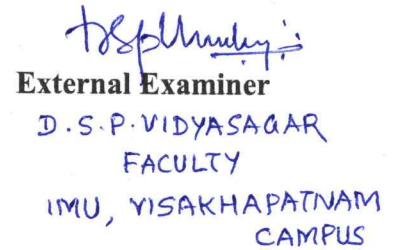 External Examiner
D.S.P. VIDYASAGAR
FACULTY
IMU, VISAKHAPATNAM
CAMPUS